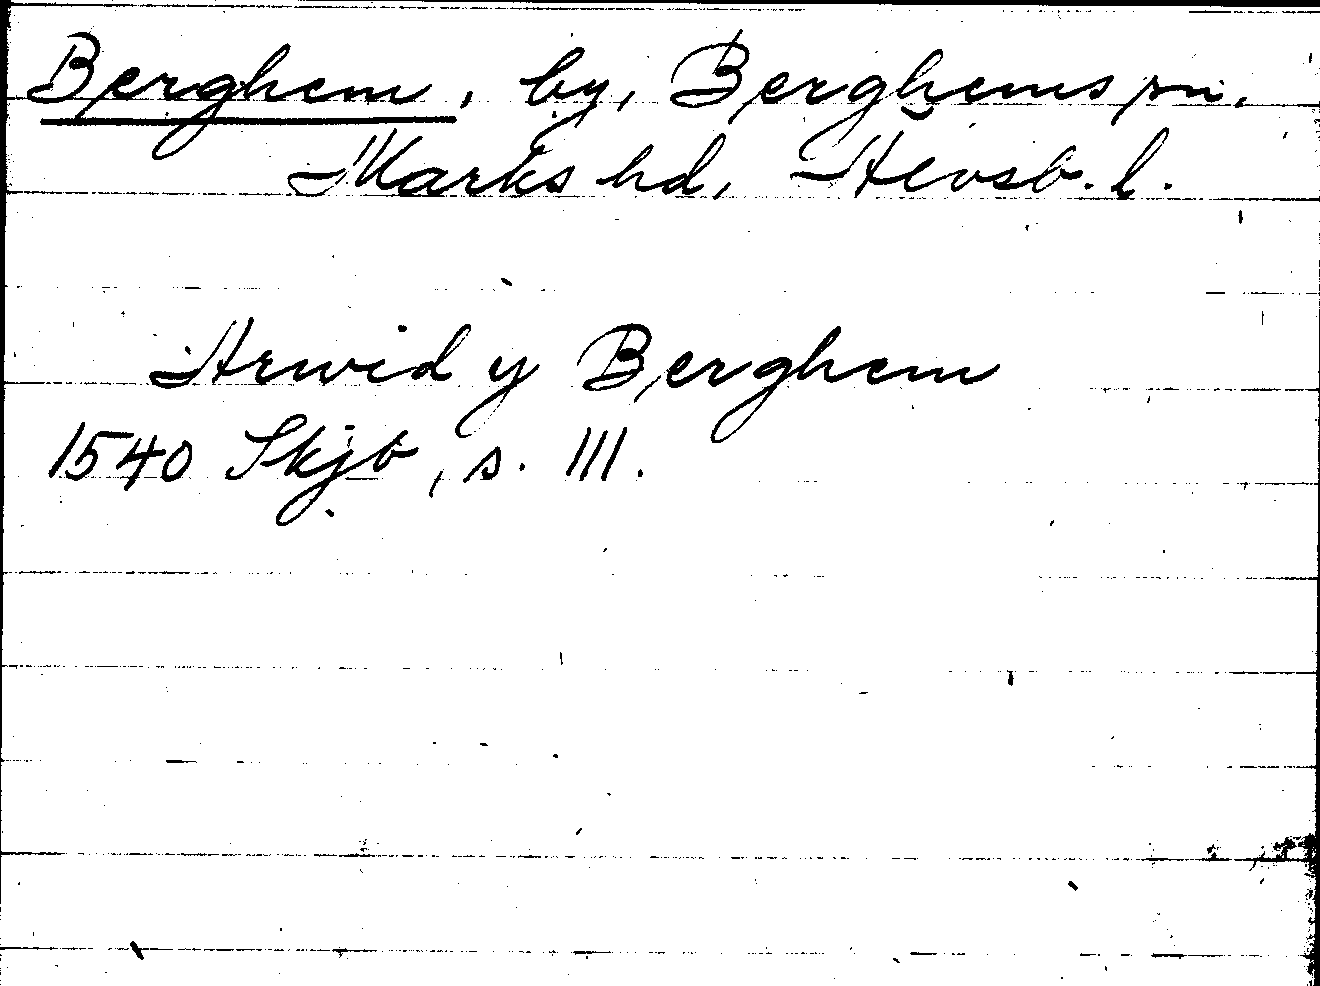 Berghem, by, Berghems sn.
Marks hd, Älvsb. l.
Arwid y Berghem
1540 Skjb, s. 111.